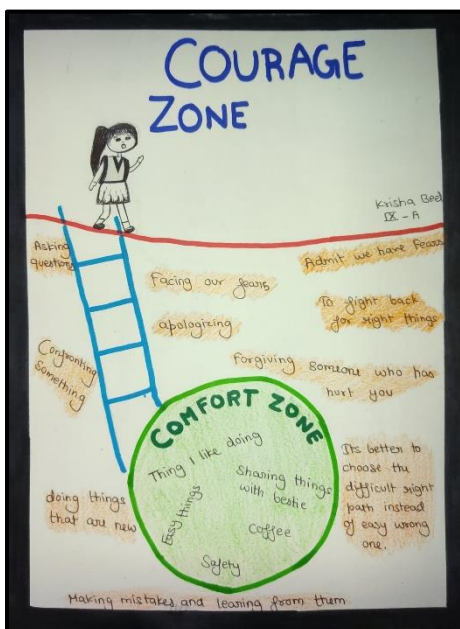 COURAGE
ZONE
Krisha Beel
IX - A
Asking
questions
Admit we have fears
Facing our fears
To fight back
for right things
apologizing
Confronting
something
Forgiving someone who has
hurt you
COMFORT ZONE
Thing I like doing
Sharing things
with bestie
Easy things
Coffee
Safety
Its better to
choose the
difficult right
path instead
of easy wrong
one.
doing things
that are new
Making mistakes and learing from them